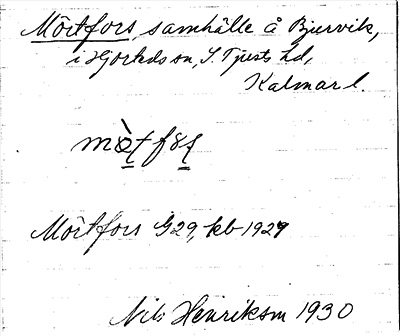 Mörtfors, samhälle å Bjurvik,
i Hjorteds sn, S. Tjusts hd,
Kalmar l.
Mörtfors G29, kb 1929
Nils Henrikson 1930